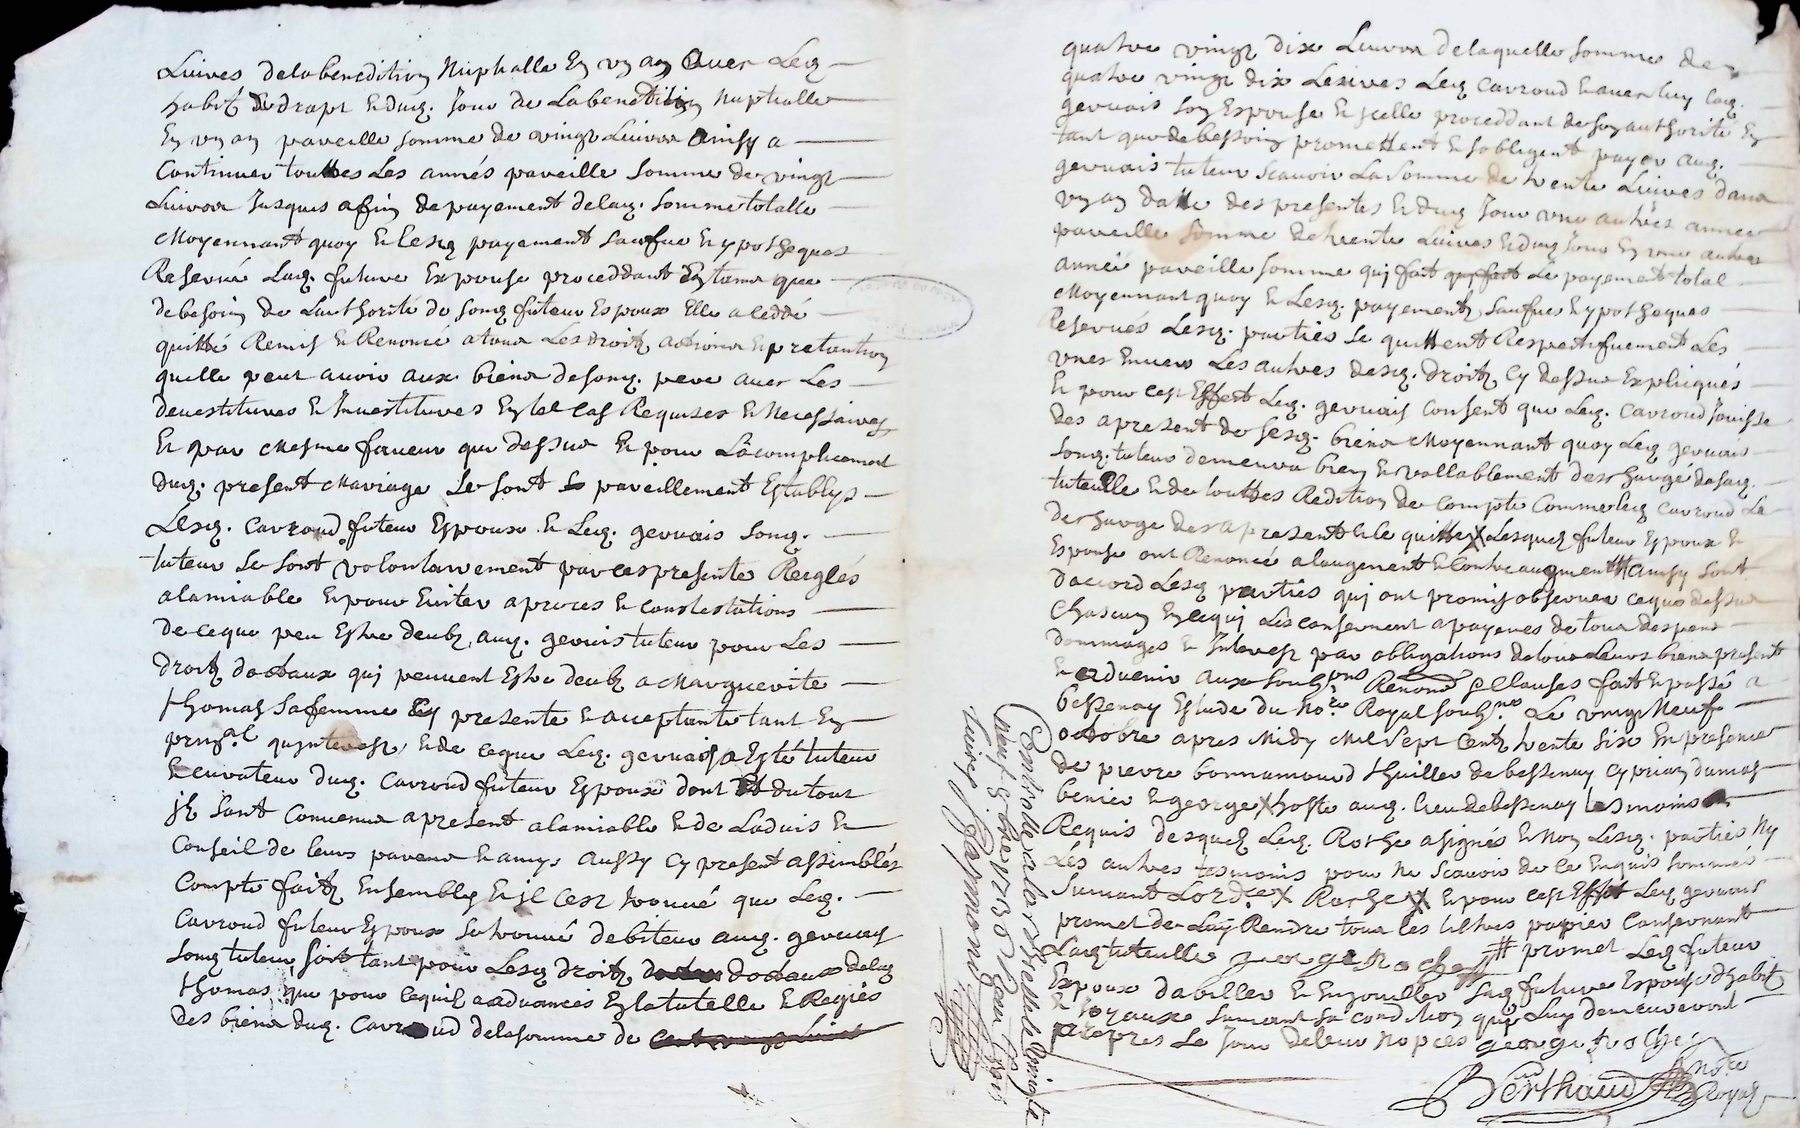 Luives dela benedition Nuphalle En vn an Avec Leq
habit de drapt Et duq. Jour de La benedition Nuptialle
En vn an pareille somme de vingt Luivres Ainsy a
Continuer touttes Les annés pareille somme de vingt
Luivres Jusques a fin de payement de laq. somme totalle
Moyennant quoy Et lesq payement saufue Et ypotheques
Reservé Laq. future Expouse proceddant En tems que
de besoin de Lauthorité de sonq futeur Espoux Elle a ceddé
quitté Remis Et Renoncé a tous Les droitz actions Et pretantion
quelle peut avoir aux biens de sonq. pere avec Les
deuestitures Et Inuestitures En tel cas Requises Et Necessaires
Et par mesme faueur que dessus Et pour Lacomplicement
duq. present Mariage Se sont pareillement Establys
Lesq. Cavroud futeur Espoux Et Leq. gervais sonq.
tuteur Se sont volontairement par ces presente Reiglés
alamiable Et pour Eviter a proces Et constestations
de ce que peu Estre deubz auq. gervais tuteur pour Les
droitz dotaux qui peuuent Estre deubz a Marguerite
thomas sa femme Cy presente Et acceptante tant En
prinal quinterest, Et de ce que Leq. gervais a Esté tuteur
Et curateur duq. Cavroud futeur Espoux dont Et du tout
jls sont Convenus a present alamiable Et de Laduis Et
Conseil de leurs parens Et amys aussy Cy present assemblés
Compte faitz Ensembles Et jl cest trouvé que Leq.
Cavroud futeur Espoux se trouvé debiteur auq. gervais
sonq tuteur, soit tant pour Lesq droitz dotaux delaq
thomas que pour cequil a aduancés En la tutelle Et Regies
des biens duq. Cavroud dela somme de
quatre vingt dix Luivres de laquelle somme de
quatre vingt dix Lesives Leq Cavroud Et avec luy laq.
gervais son Espouse Et jcelle proceddant de son authorité En
tant que de bessoin promettent Et sobligent payer auq.
gervais tuteur scavoir La somme de trente Luives dans
vn an datte des presentes Et duq Jour vne autres année
pareille somme de trente Luives Et duq Jour En vne autre
année pareille somme qui fait Le payement total
Moyennant quoy Et Lesq. payement, saufues Et ypotheques
Reservés Lesq. parties se quittent Respectifuement Les
vnes Envers Les autres desq. droitz cy dessus Expliqués
Et pour cest Effect Leq. gervais consent que Leq. Cavroud Jouisse
des a present de sesq. biens Moyennant quoy Leq gervais
sonq. tuteur demeurra bien Et vallablement descharge de saq.
tutelle Et de touttes Redition de compte Comme leq Cavroud Le
descharge des a present Et le quitte Lesques futeur Espoux Et
Espouse ont Renoncé a laugement Et contre augment Ainsy sont
daccord Lesq parties qui ont promis observer ce que dessus
Chascun En cequi Les consernent a payenes de tous despens
dommages Et Interest par obligations de tous Leurs biens present
Et aduenir aux soubzons Renons Et Clauses fait Et passé a
bessenay Estude du nore Royal soubzne Le vingt Neuf
octobre apres Midy Mil sept Centz trente six En presence
de pierre bonnamour thuillier de bessenay Cyprian dumas
benier Et george hoste auq. lieu de bessenay tesmoins
Requis desquelz Leq. Roche a signés Et Non Lesq. parties Ny
Les autres tesmoins pour Ne scavoir de ce Enquis sommés
suivant Lordce Roche Et pour cest Effet Leq gervais
promet de Luy Rendre tous les tiltres papier Consernant
Laq tutelle george Roche promet Leq futeur
Expoux dabiller Et Enjouiller saq future Espouse dhabitz
Et joyaux suivant sa condition qui Luy demeureront
propres Le Jour de leur Nopces george Roche
Berthaud nore Royal
Controlle a larbresle le
neuf 9bre 1736 Reçu
livres